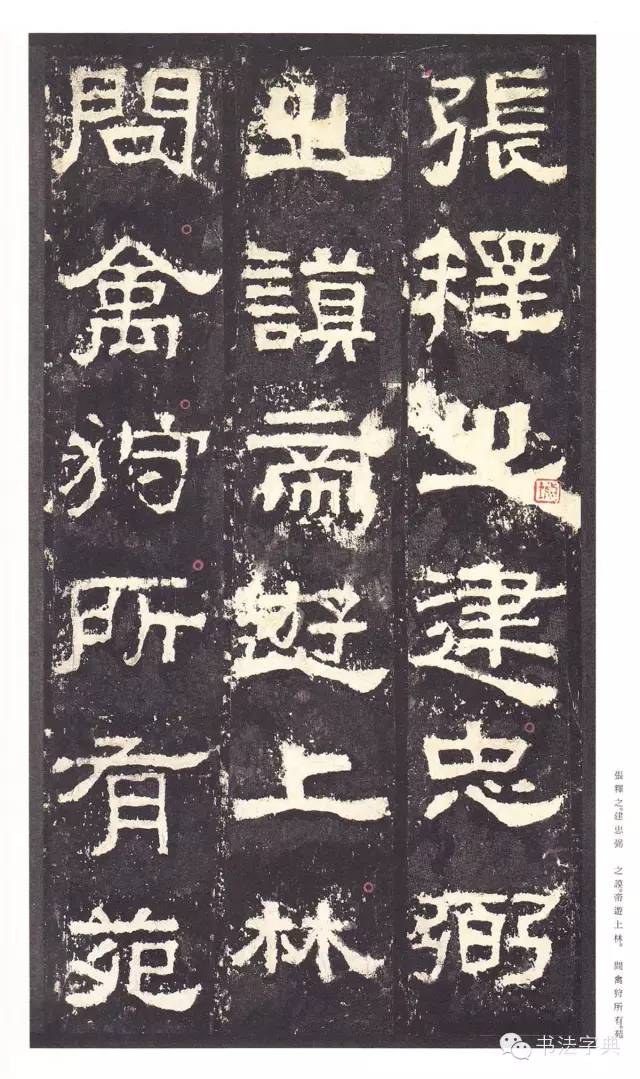 張釋之建忠弼
之謨帝遊上林
問禽狩所有苑
張釋之。建忠弼　之謨。帝遊上林。　問禽狩所有。苑
书法字典